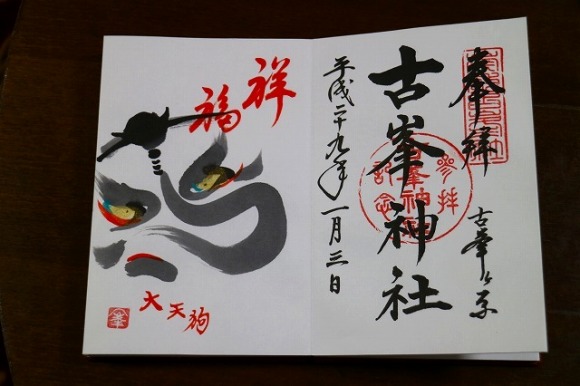 奉拝
古峯ヶ原
古峯神社
参拝
記念
平成二十九年一月三日
祥
福
大天狗